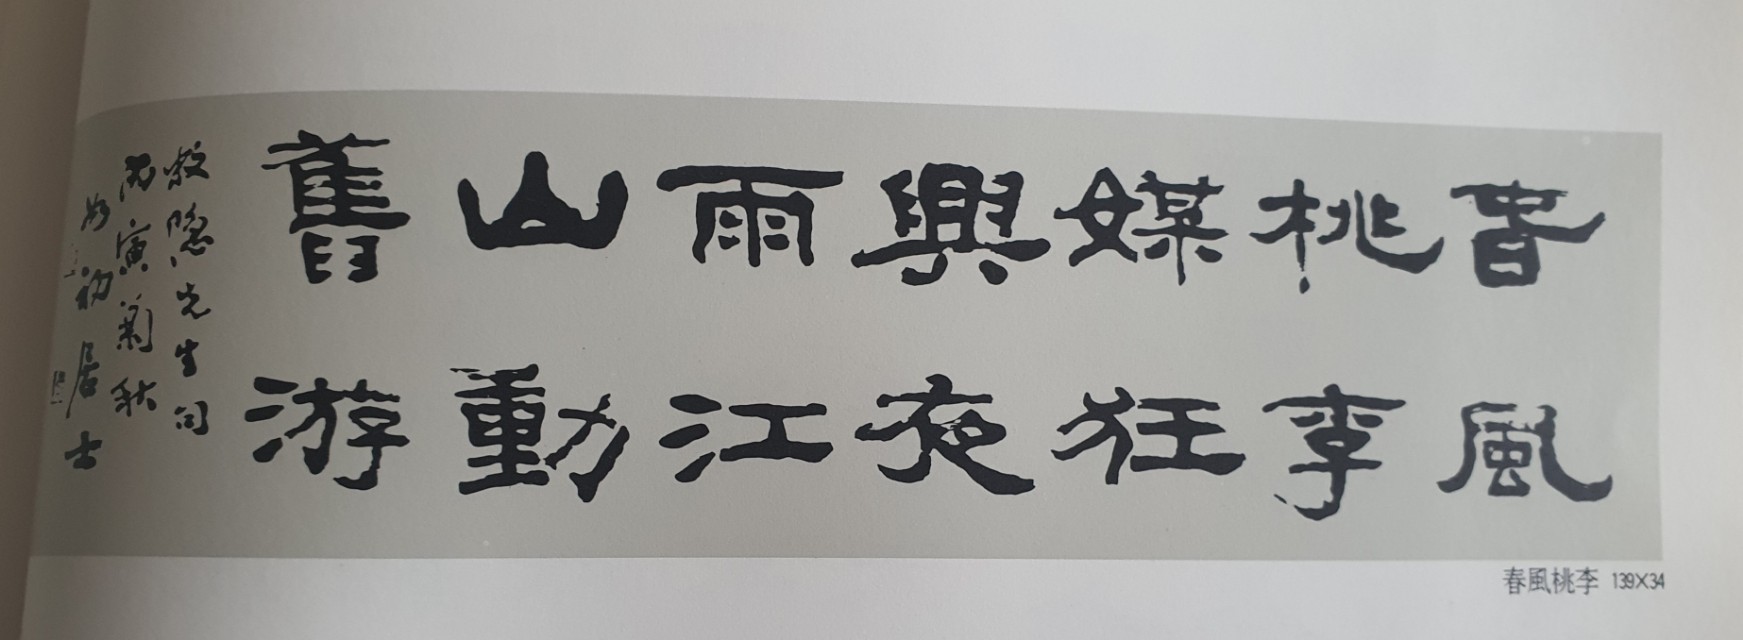 春風
桃李
媒狂
興夜
雨江
山動
舊游
隱先生句
丙寅菊秋
如初居士
春風桃李 139X34